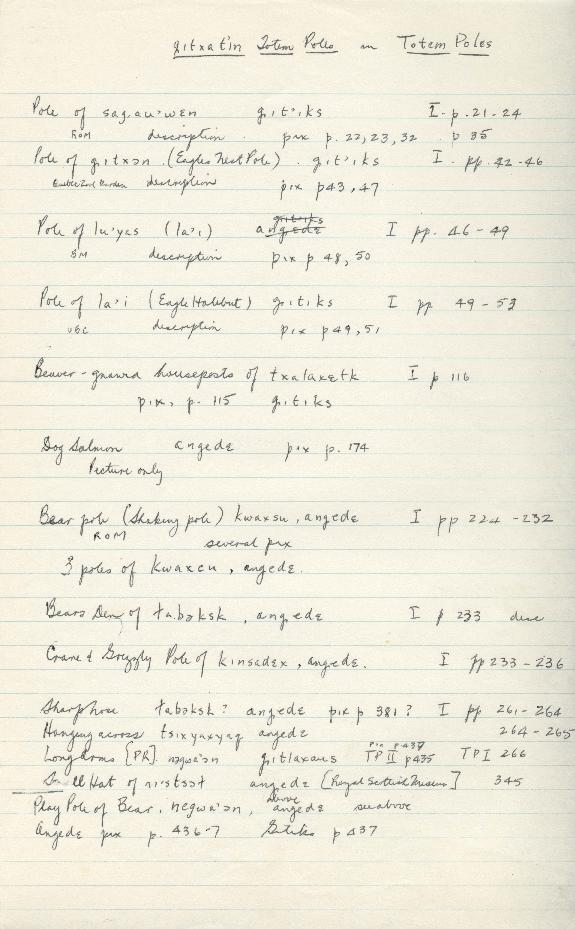 gitxat'in Totem Poles in Totem Poles
Pole of sagau'wen git'iks I - p. 21-24
ROM description. pix p. 22, 23, 32 p 35
Pole of gitxən (Eagles Nest Pole). git'iks I. pp. 42-46
description pix p43, 47
Pole of lu'yas (la'i) angedɛ I pp. 46-49
BM description pix p 48, 50
Pole of la'i (Eagle Halibut) gitiks I pp 49-53
UBC description pix p49, 51
Beaver-gnawed houseposts of txalaxɛtk I p 116
pix, p. 115 gitiks
Dog Salmon angedɛ pix p. 174
Picture only
Bear pole (Shaking pole) kwaxsu, angedɛ I pp 224-232
ROM several pix
3 poles of kwaxcu, angedɛ.
Bears Den of tabəksk, angedɛ I p 233 desc
Crane & Grizzly Pole of kinsadɛx, angedɛ. I pp 233-236
Sharpnose tabəksk? angedɛ pix p 381? I pp 261-264
Hanging across tsixyaxyaq angedɛ 264-265
pix p 437
Longarms [PR]. negwa'ən gitlaxaus TP II p435 TPI 266
Hat of angedɛ [Royal Scottish Museum] 345
above
Play Pole of Bear, negwa'ən, angedɛ see above
Angedɛ pix p. 436-7 Gitiks p 437